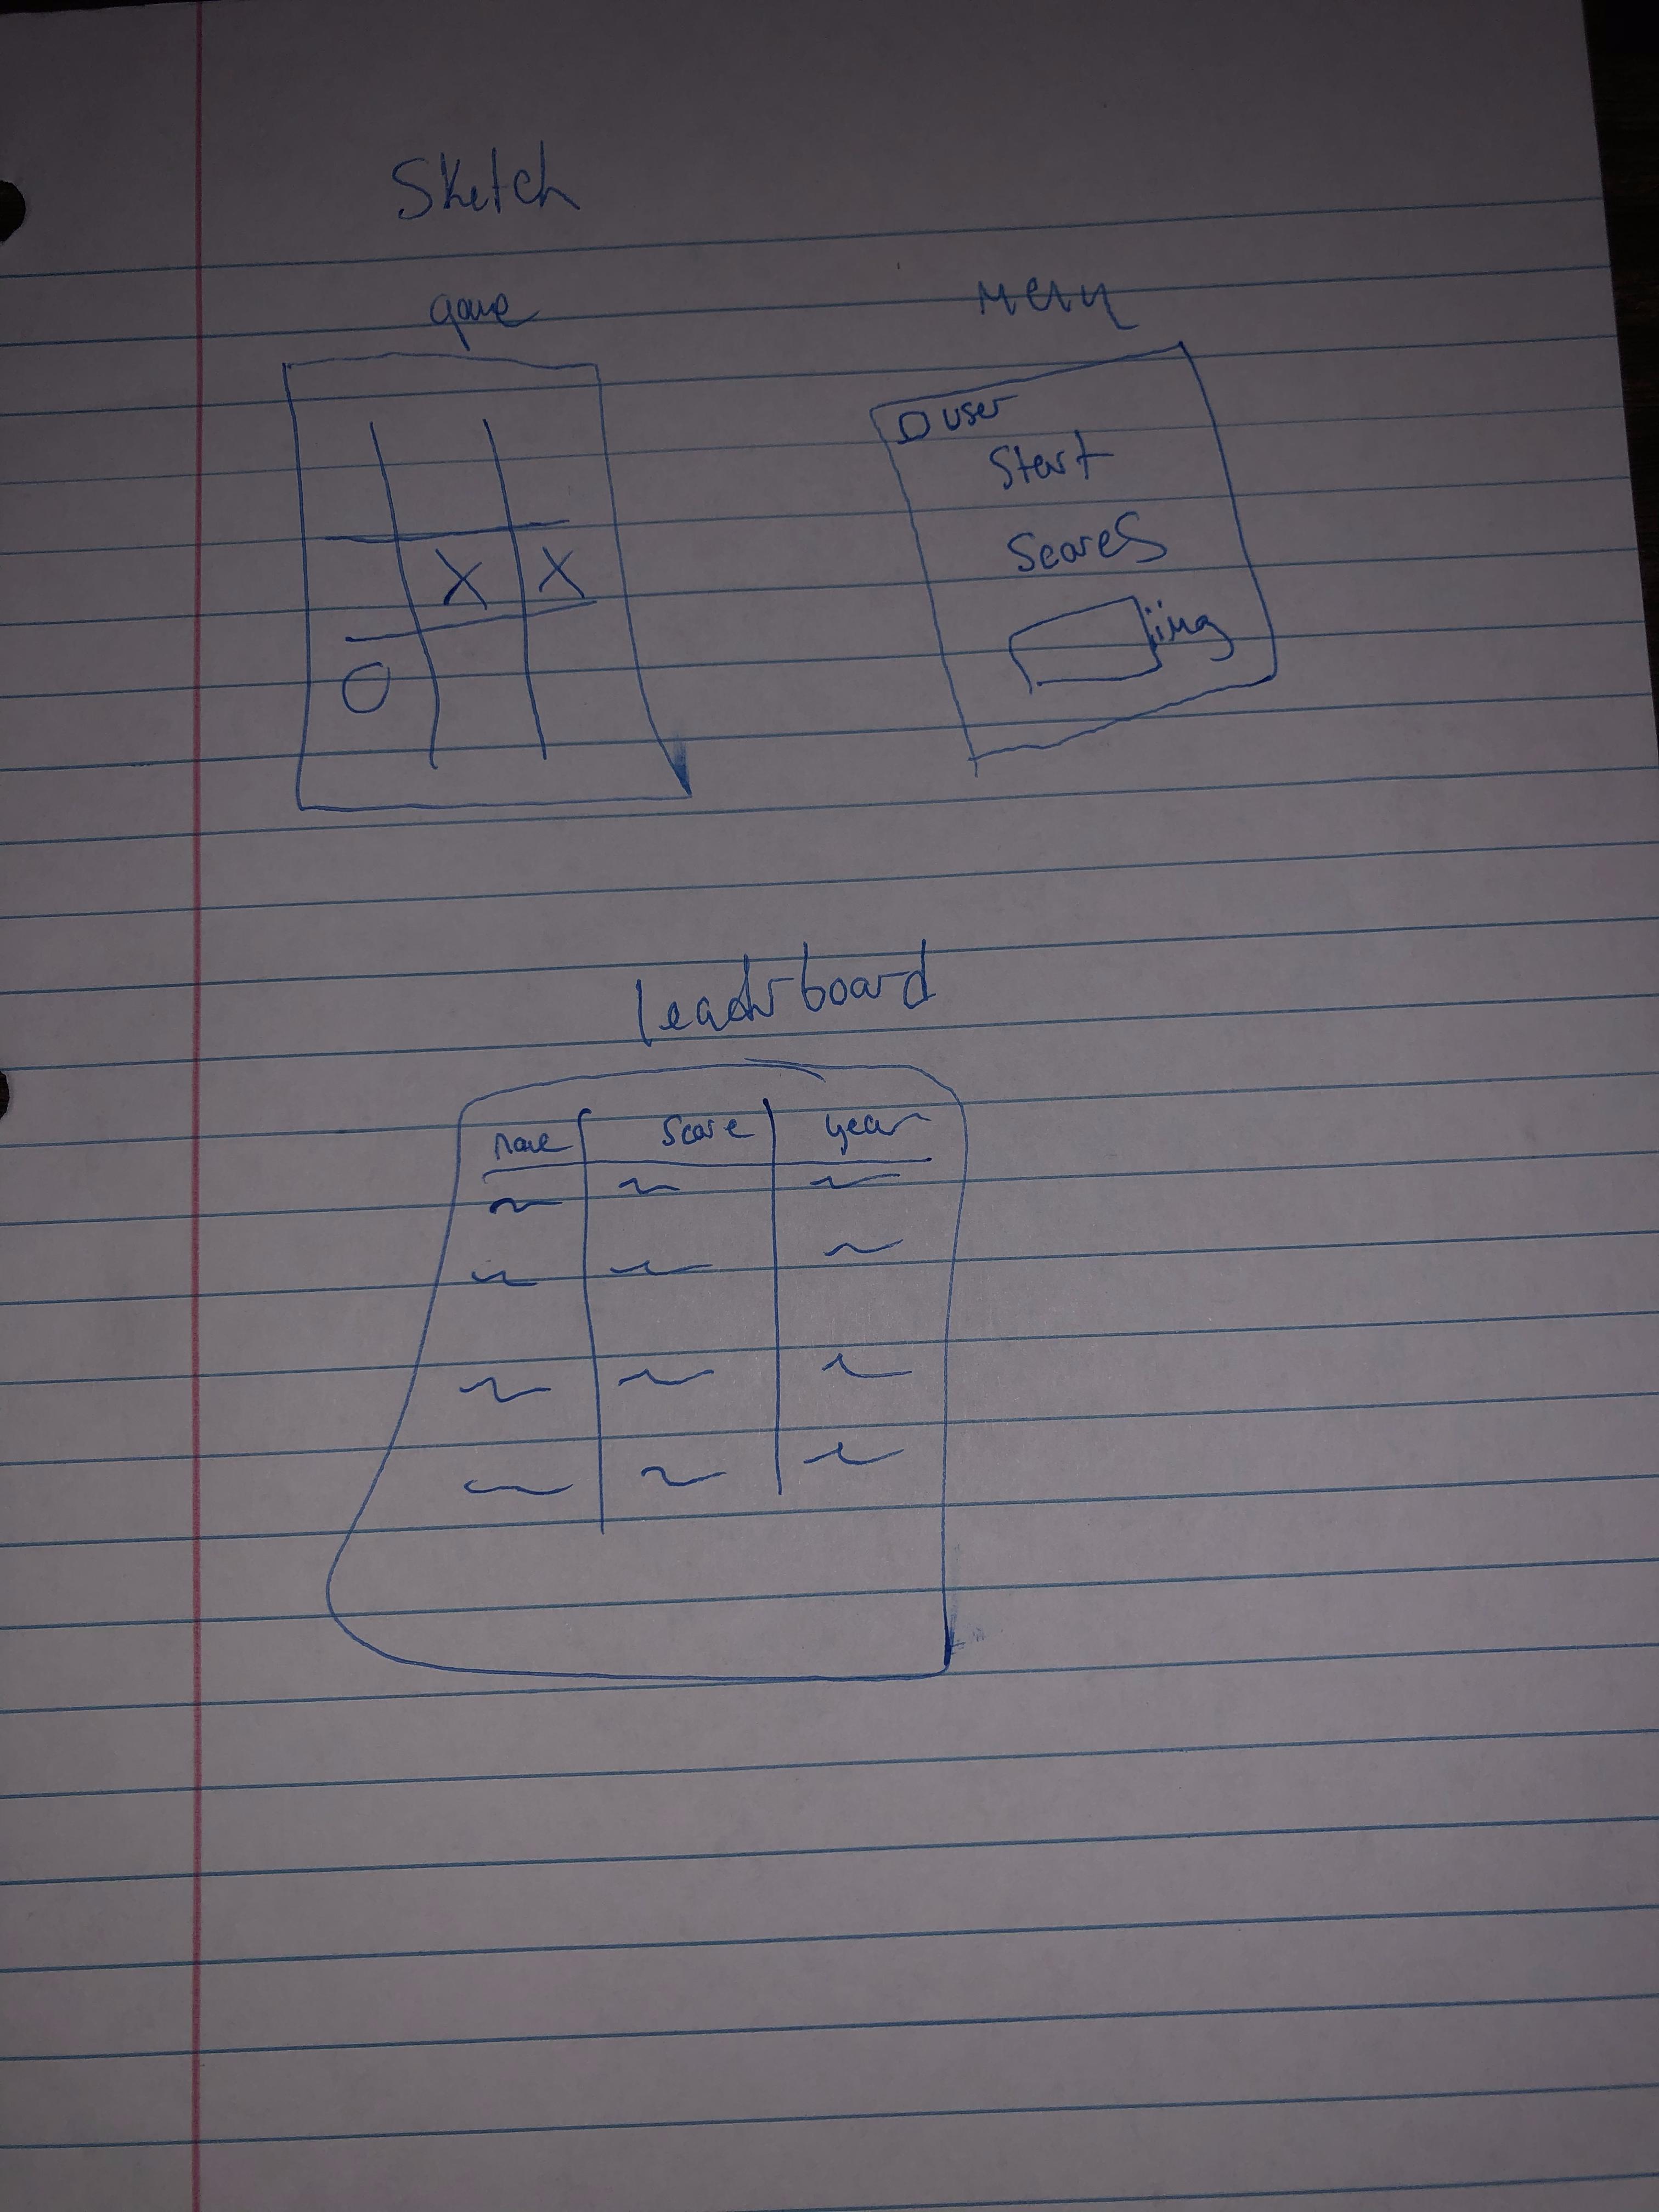 Sketch
game
menu
user
Start
Scores
img
X X
O
leaderboard
name score year